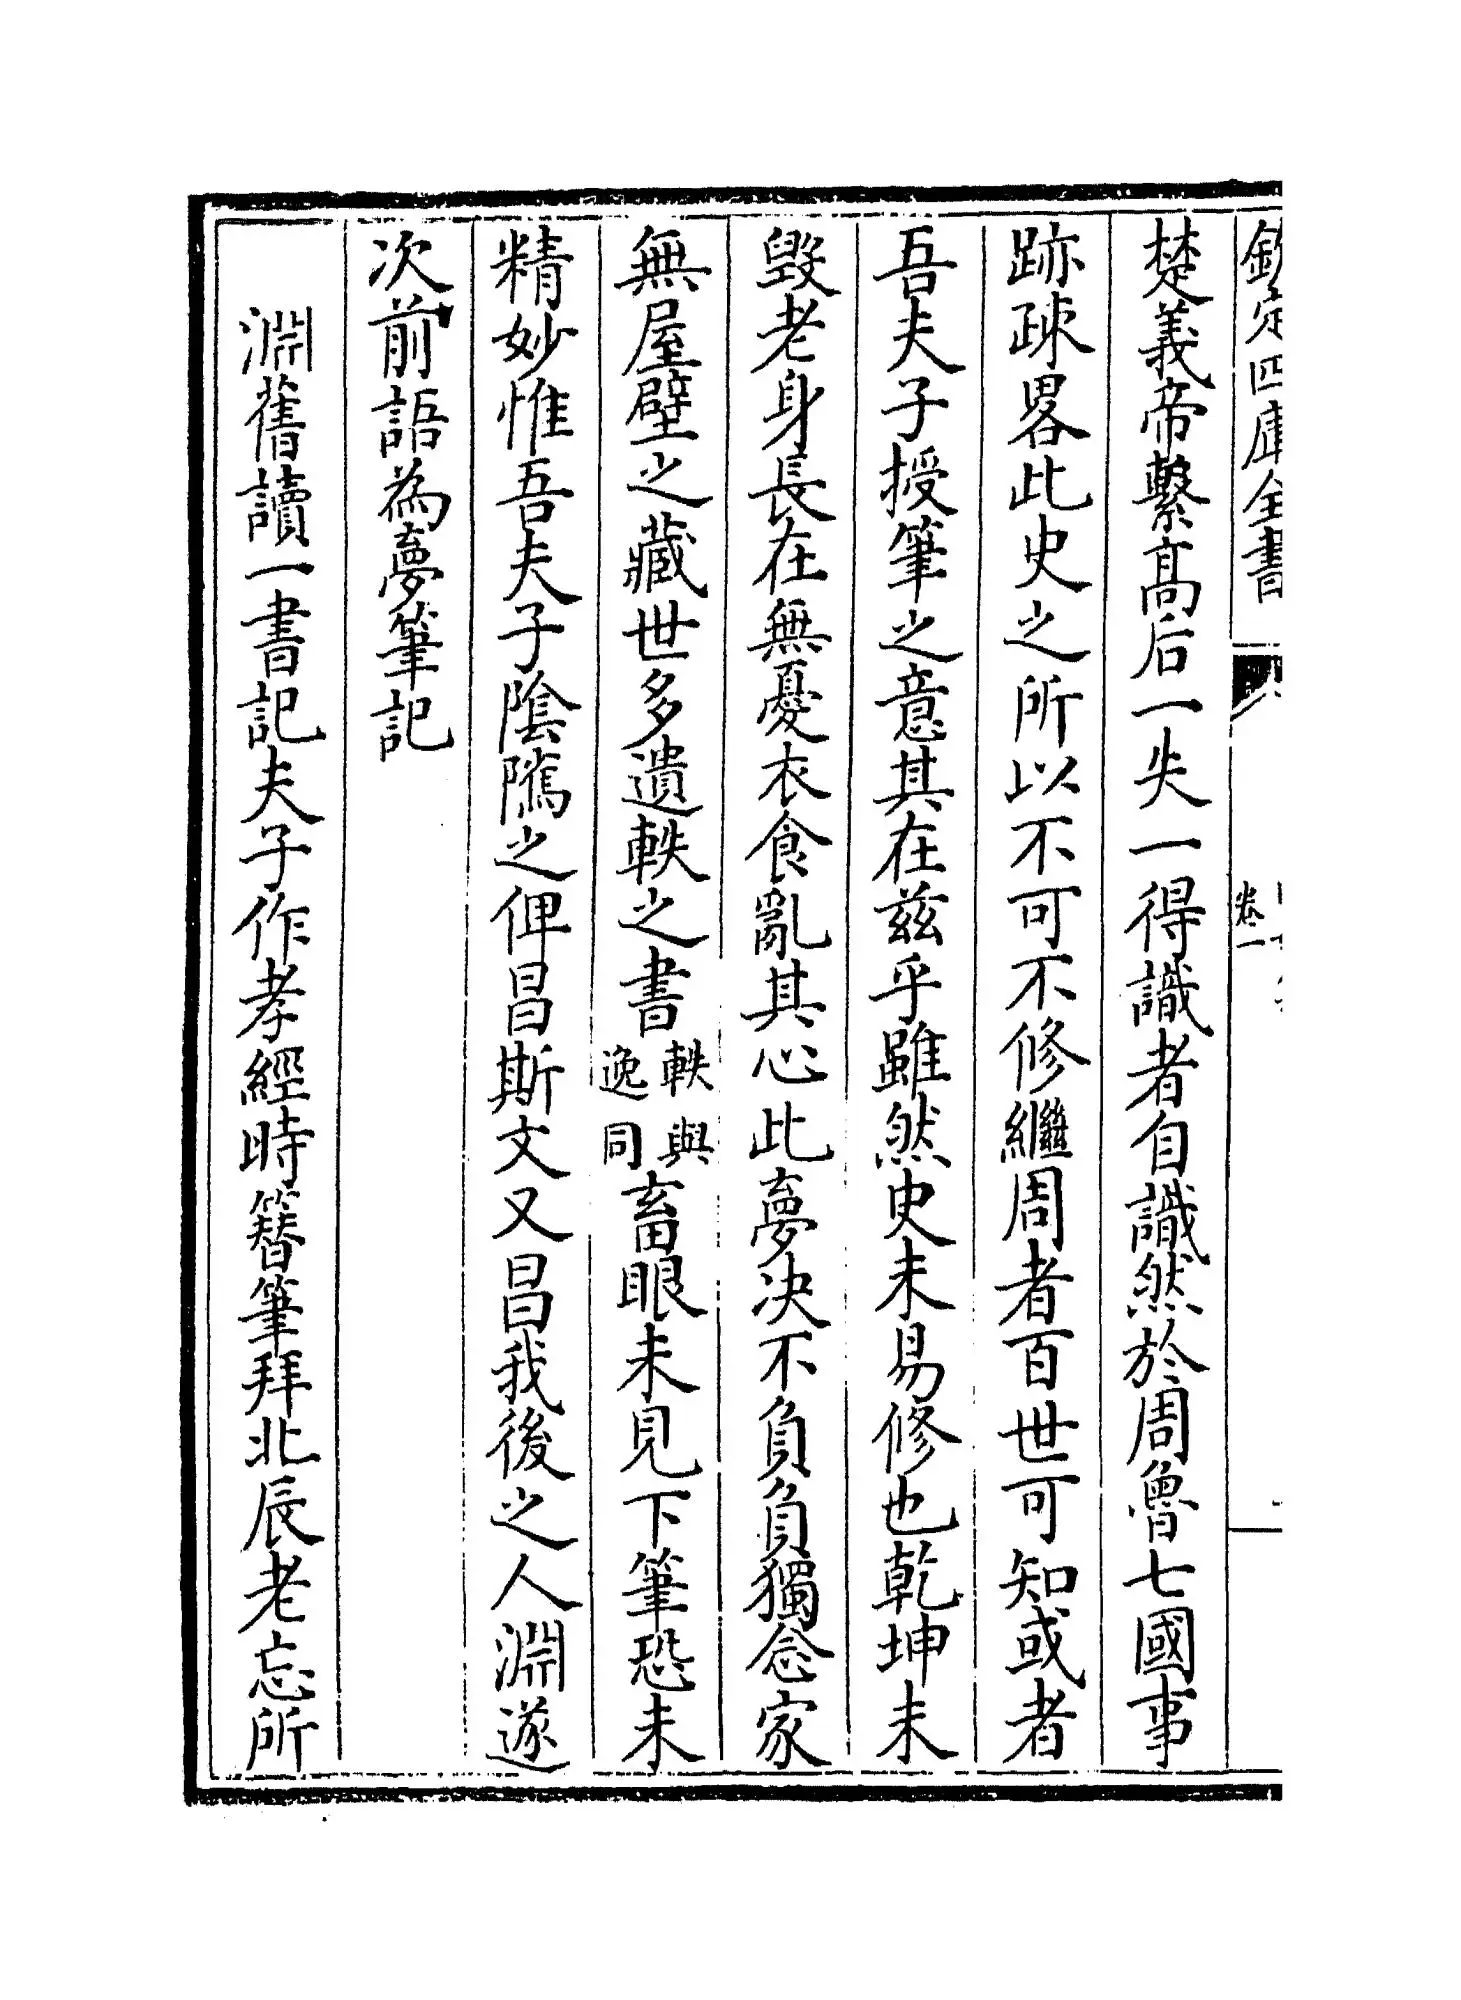 欽定四庫全書
卷一
楚義帝繫髙后一失一得識者自識然於周魯七國事
跡疎畧此史之所以不可不修繼周者百世可知或者
吾夫子授筆之意其在兹乎雖然史未易修也乾坤未
毀老身長在無憂衣食亂其心此夢決不負負獨念家
無屋壁之藏世多遺軼之書軼與逸同畜眼未見下筆恐未
精妙惟吾夫子隂隲之俾昌斯文又昌我後之人淵遂
次前語為夢筆記
淵舊讀一書記夫子作孝經時簪筆拜北辰老忘所